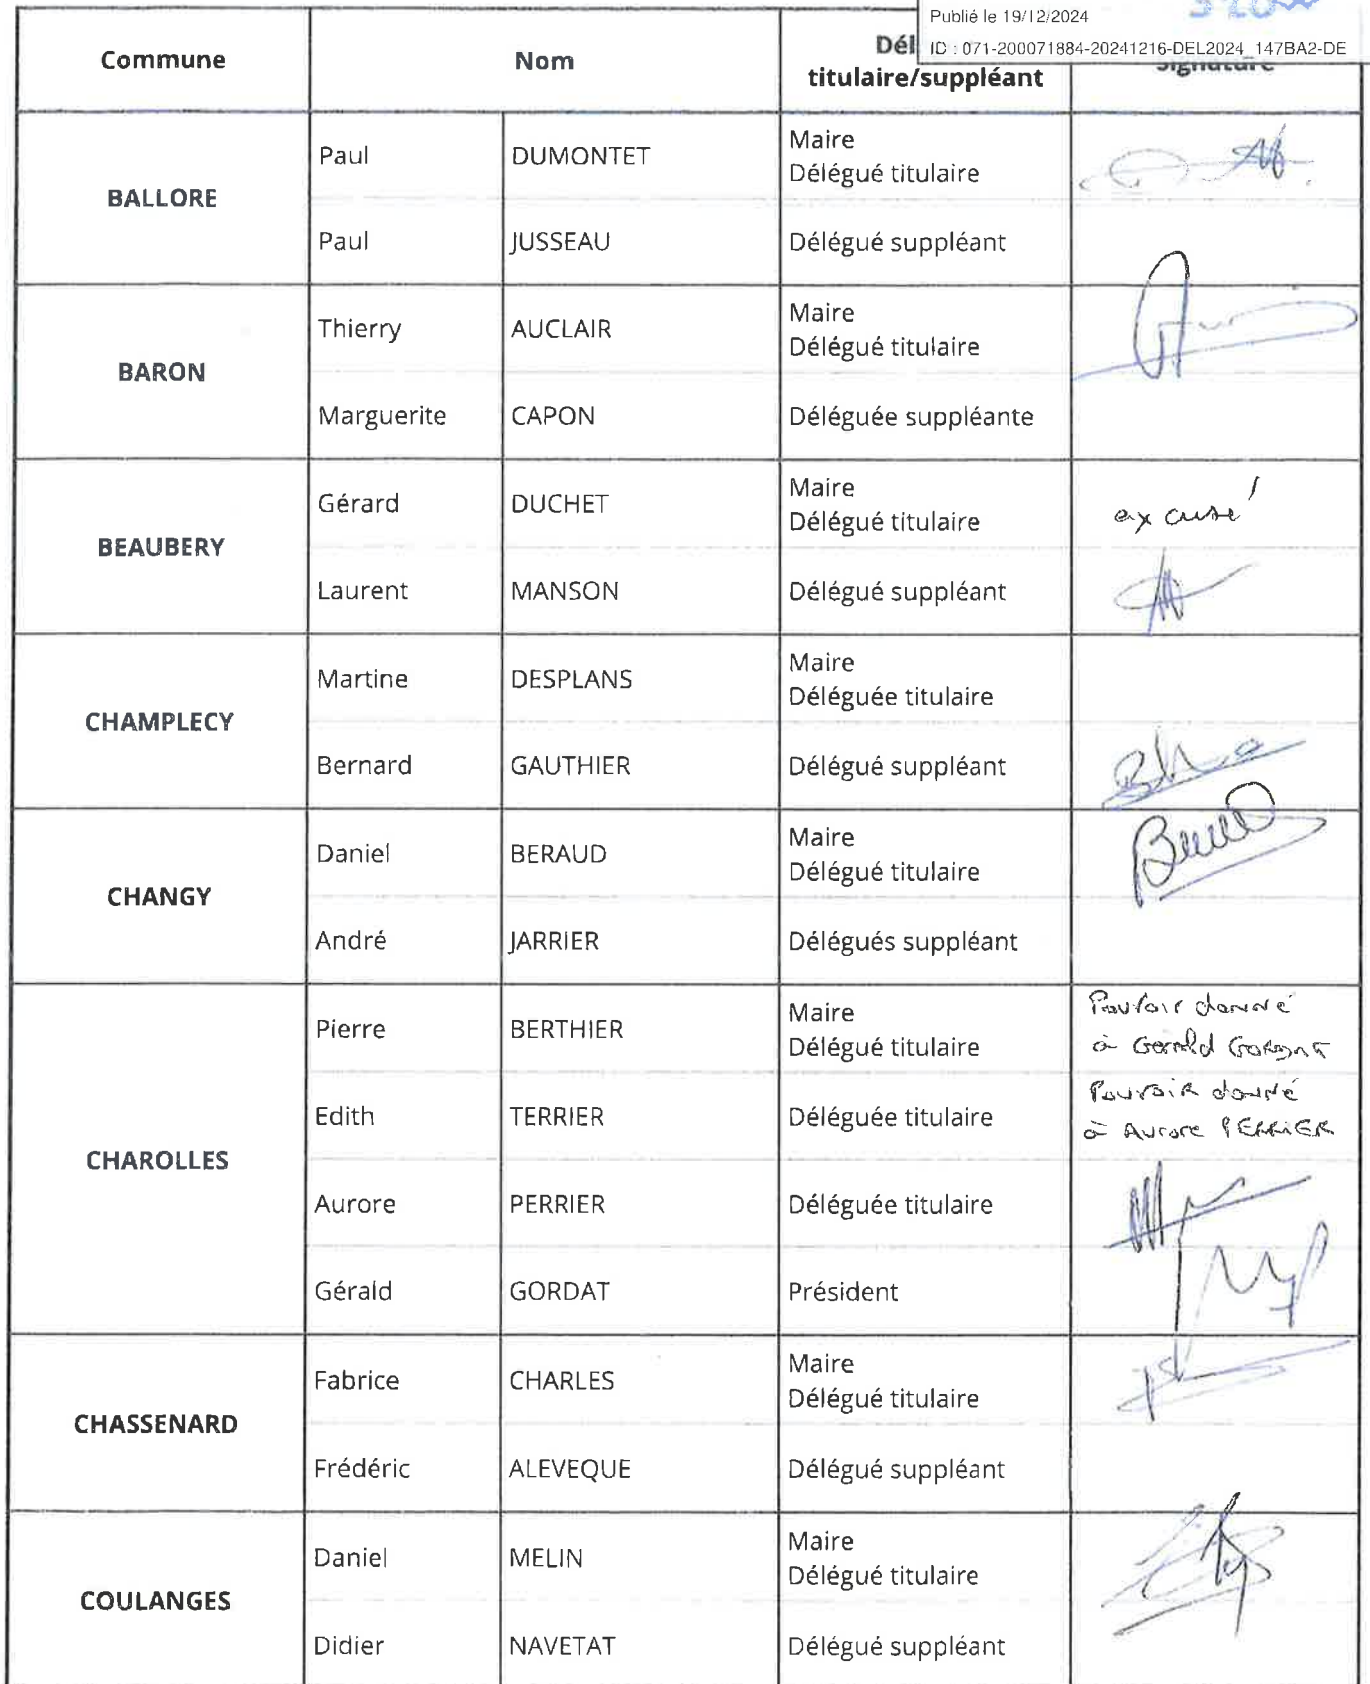 Publié le 19/12/2024
ID : 071-200071884-20241216-DEL2024_147BA2-DE
Commune
Nom
Dél
titulaire/suppléant
Signature
BALLORE
Paul DUMONTET
Maire
Délégué titulaire
Paul JUSSEAU Délégué suppléant
BARON
Thierry AUCLAIR
Maire
Délégué titulaire
Marguerite CAPON Déléguée suppléante
BEAUBERY
Gérard DUCHET
Maire
Délégué titulaire
excusé
Laurent MANSON Délégué suppléant
CHAMPLECY
Martine DESPLANS
Maire
Déléguée titulaire
Bernard GAUTHIER Délégué suppléant
CHANGY
Daniel BERAUD
Maire
Délégué titulaire
André JARRIER Délégués suppléant
CHAROLLES
Pierre BERTHIER
Maire
Délégué titulaire
Pouvoir donné
à Gérald GORDAT
Edith TERRIER Déléguée titulaire
Pouvoir donné
à Aurore PERRIER
Aurore PERRIER Déléguée titulaire
Gérald GORDAT Président
CHASSENARD
Fabrice CHARLES
Maire
Délégué titulaire
Frédéric ALEVEQUE Délégué suppléant
COULANGES
Daniel MELIN
Maire
Délégué titulaire
Didier NAVETAT Délégué suppléant